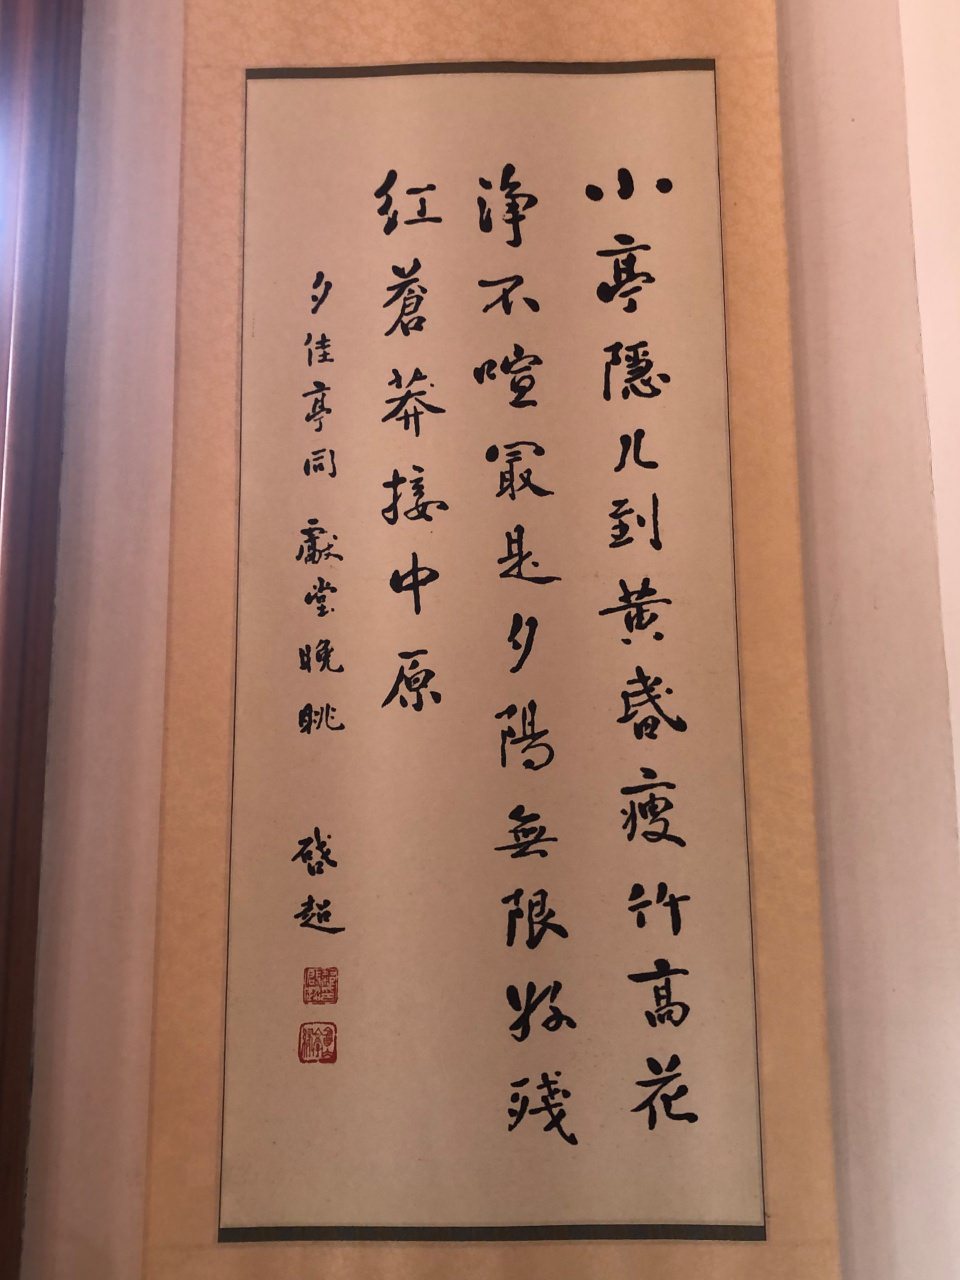 小亭隱几到黃昏瘦竹高花
淨不喧冣是夕陽無限好殘
紅蒼莽接中原
夕佳亭同 獻堂晚眺
啓超